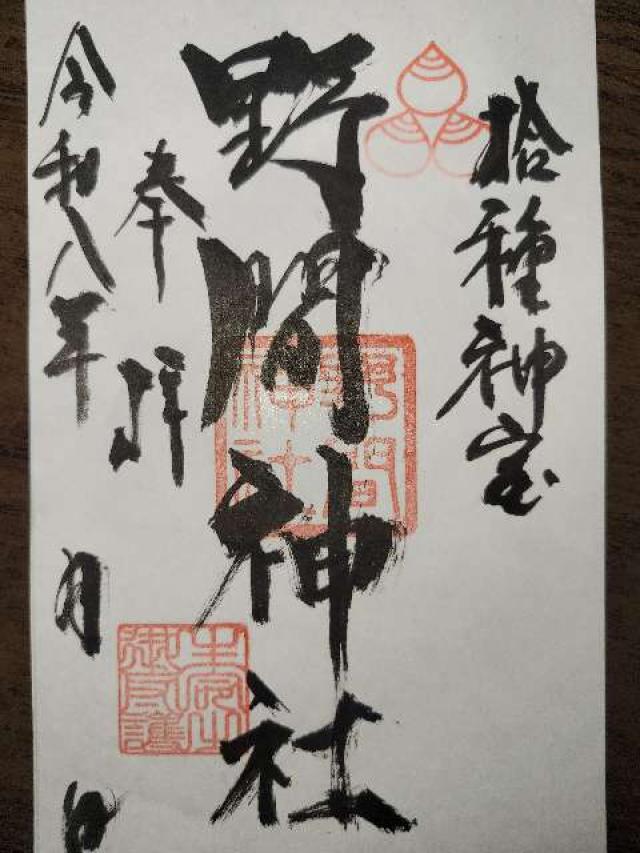 拾種神宝
野間神社
奉拝
令和八年 月 日
野間神社